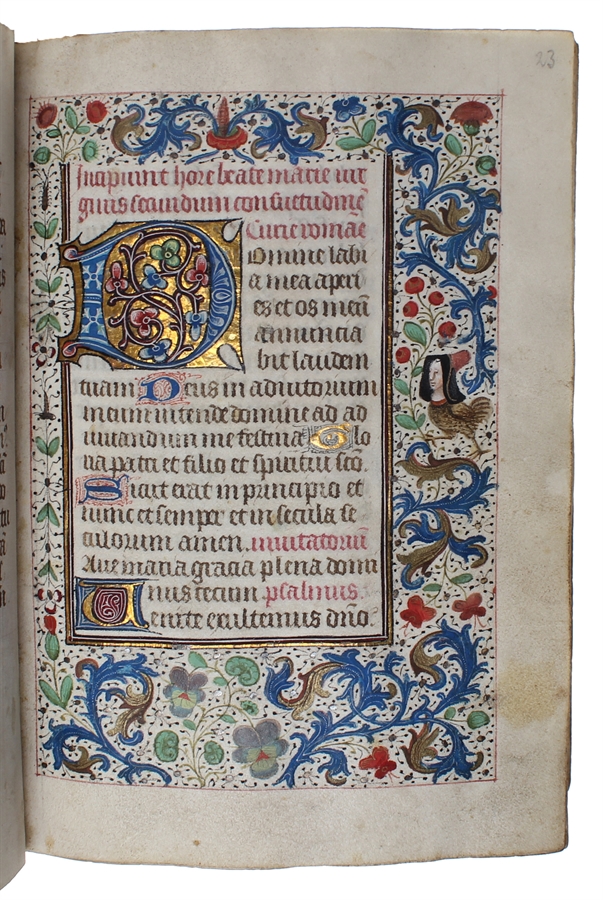 23
Incipiunt hore beate marie uir
ginis secundum consuetudinē
Curie romae
Domine labi
a mea aperi
es et os meū
annuncia
bit laudem
tuam Deus in adiutorium
meum intende domine ad ad
iuuandum me festina Glo
ria patri et filio et spiritui sc̄o.
Sicut erat in principio et
nunc et semper et in secula se
culorum amen. inuitatoriū
Aue maria gracia plena domi
nus tecum psalmus.
Uenite exultemus dn̄o.